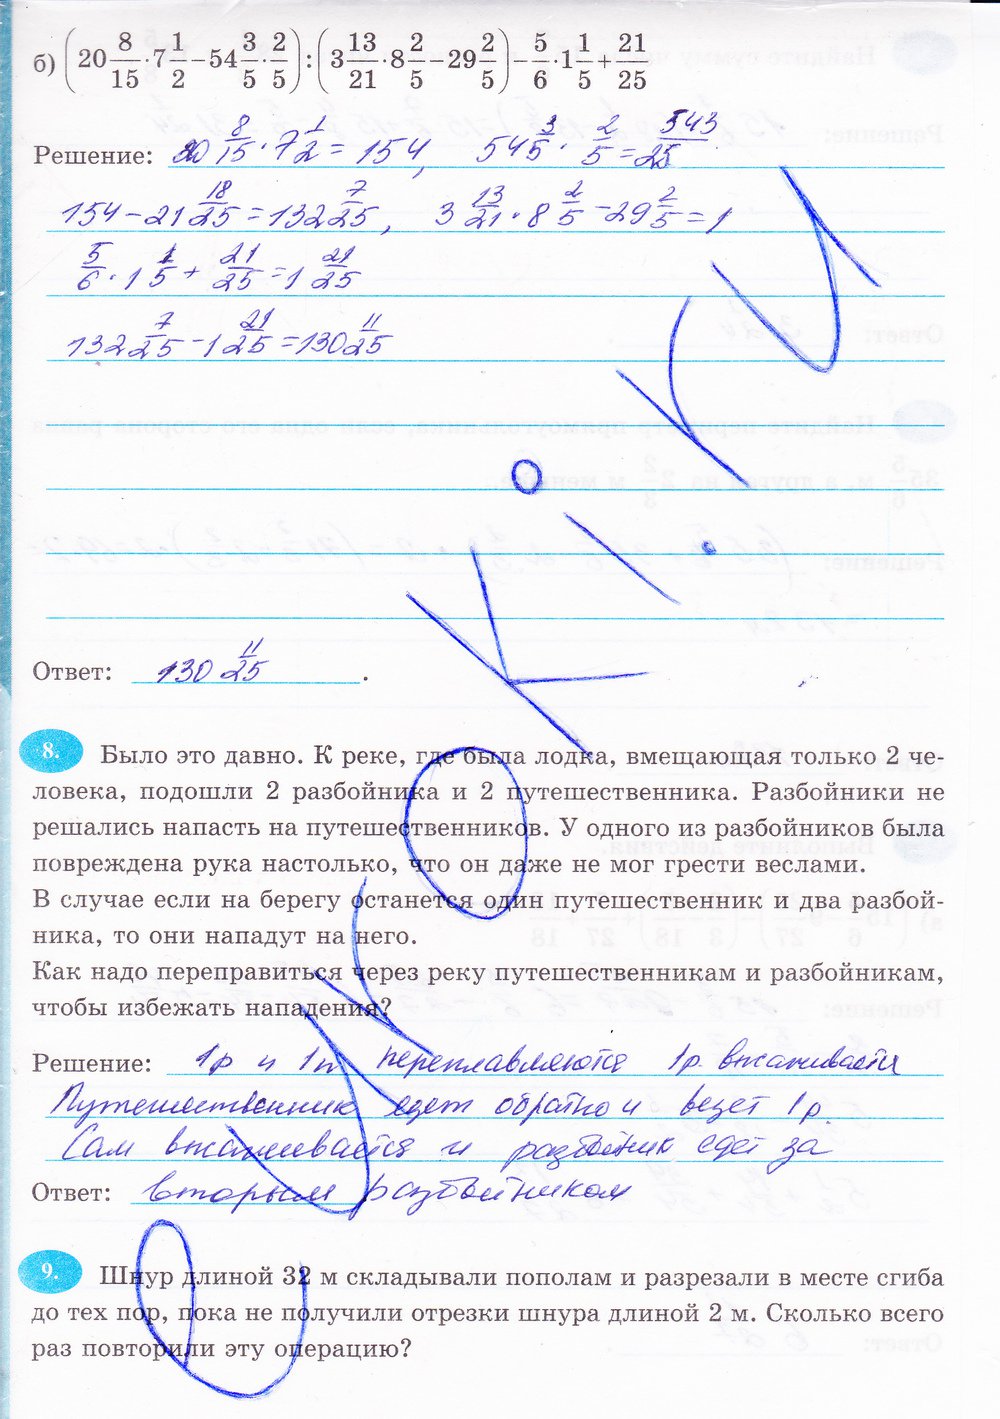 б) (20 8/15 · 7 1/2 − 54 3/5 · 2/5) : (3 13/21 · 8 2/5 − 29 2/5) − 5/6 · 1 1/5 + 21/25
Решение: 20 8/15 · 7 1/2 = 154, 54 3/5 · 2/5 = 543/25
154 − 21 18/25 = 132 7/25, 3 13/21 · 8 2/5 − 29 2/5 = 1
5/6 · 1 1/5 + 21/25 = 1 21/25
132 7/25 − 1 21/25 = 130 11/25
Ответ: 130 11/25.
8. Было это давно. К реке, где была лодка, вмещающая только 2 че-
ловека, подошли 2 разбойника и 2 путешественника. Разбойники не
решались напасть на путешественников. У одного из разбойников была
повреждена рука настолько, что он даже не мог грести веслами.
В случае если на берегу останется один путешественник и два разбой-
ника, то они нападут на него.
Как надо переправиться через реку путешественникам и разбойникам,
чтобы избежать нападения?
Решение: 1р и 1п переплавляются 1р высаживается
Путешественник едет обратно и везет 1р.
Сам высаживается и разбойник едет за
Ответ: вторым разбойником
9. Шнур длиной 32 м складывали пополам и разрезали в месте сгиба
до тех пор, пока не получили отрезки шнура длиной 2 м. Сколько всего
раз повторили эту операцию?